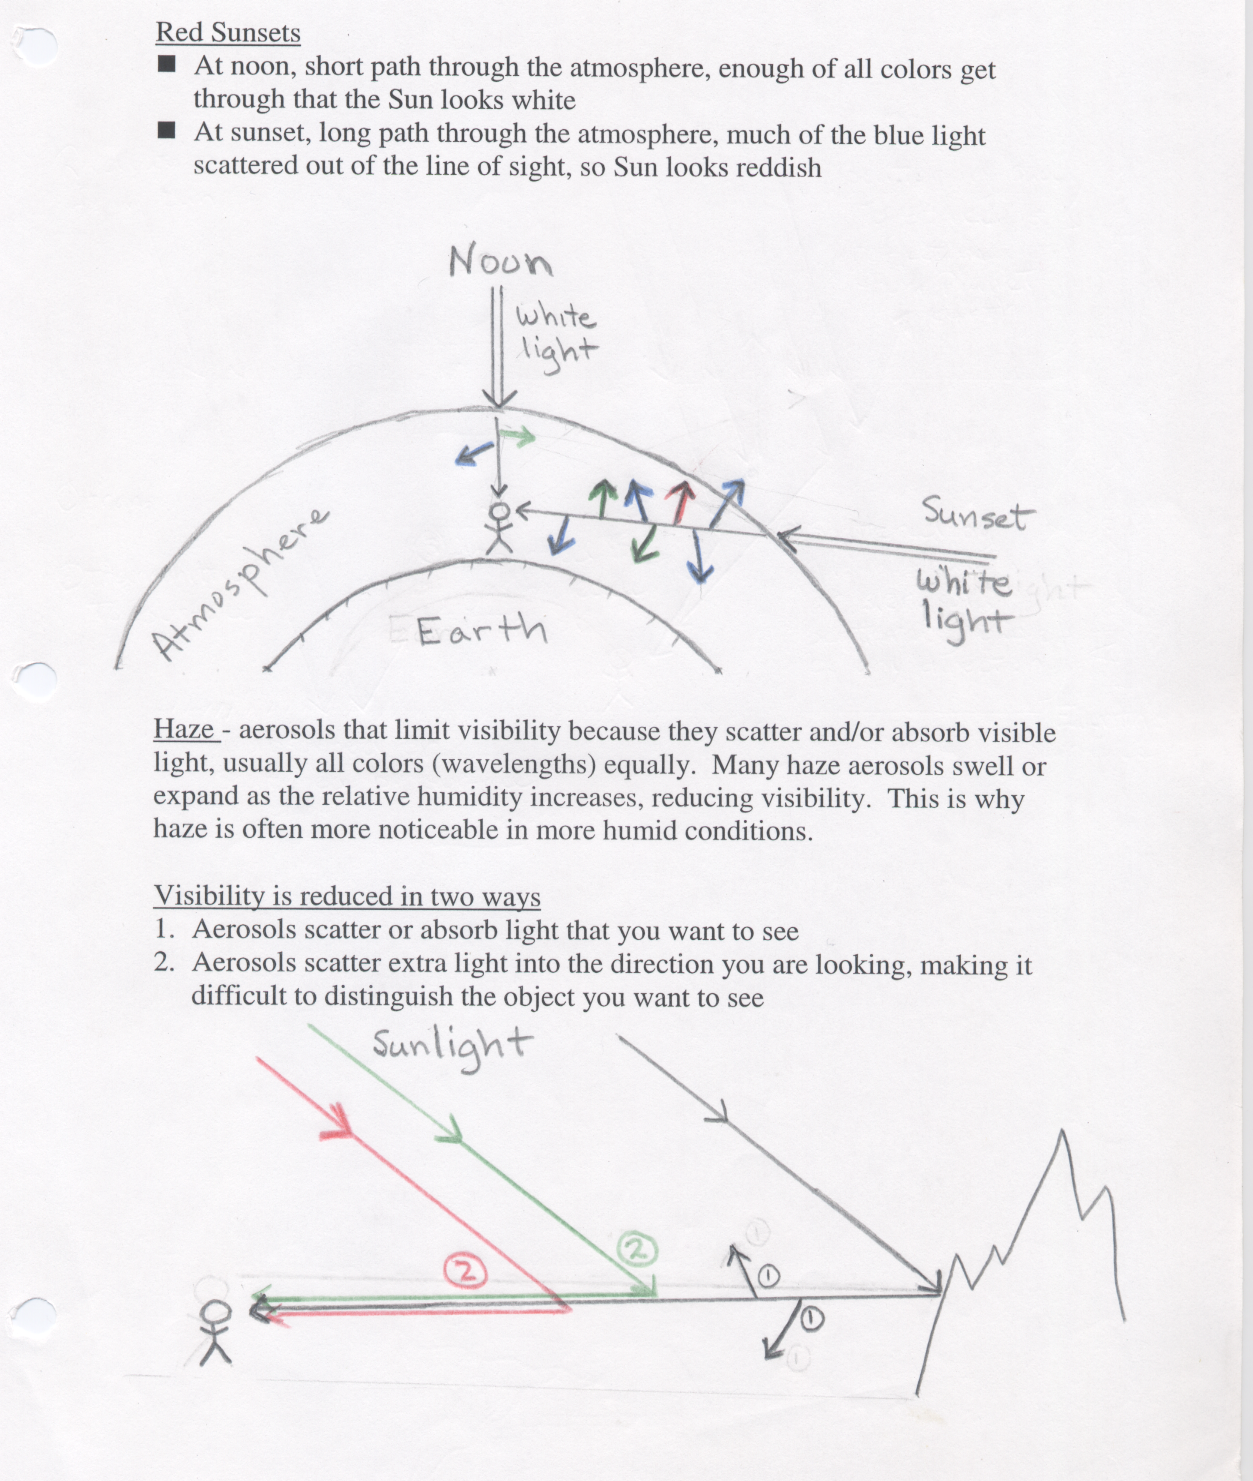 Red Sunsets
■ At noon, short path through the atmosphere, enough of all colors get
through that the Sun looks white
■ At sunset, long path through the atmosphere, much of the blue light
scattered out of the line of sight, so Sun looks reddish
Noon
White
light
Sunset
White
light
Atmosphere
Earth
Haze - aerosols that limit visibility because they scatter and/or absorb visible
light, usually all colors (wavelengths) equally.  Many haze aerosols swell or
expand as the relative humidity increases, reducing visibility.  This is why
haze is often more noticeable in more humid conditions.
Visibility is reduced in two ways
1. Aerosols scatter or absorb light that you want to see
2. Aerosols scatter extra light into the direction you are looking, making it
difficult to distinguish the object you want to see
Sunlight
②
②
①
①